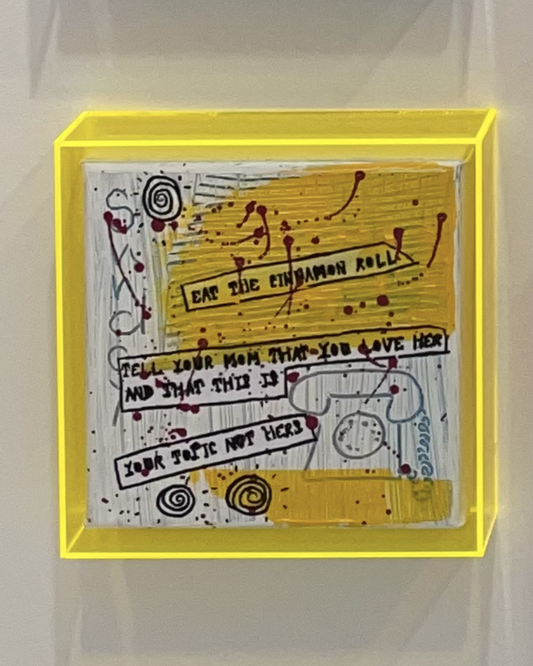 EAT THE CINNAMON ROLL
TELL YOUR MOM THAT YOU LOVE HER
AND THAT THIS IS
YOUR TOPIC NOT HERS